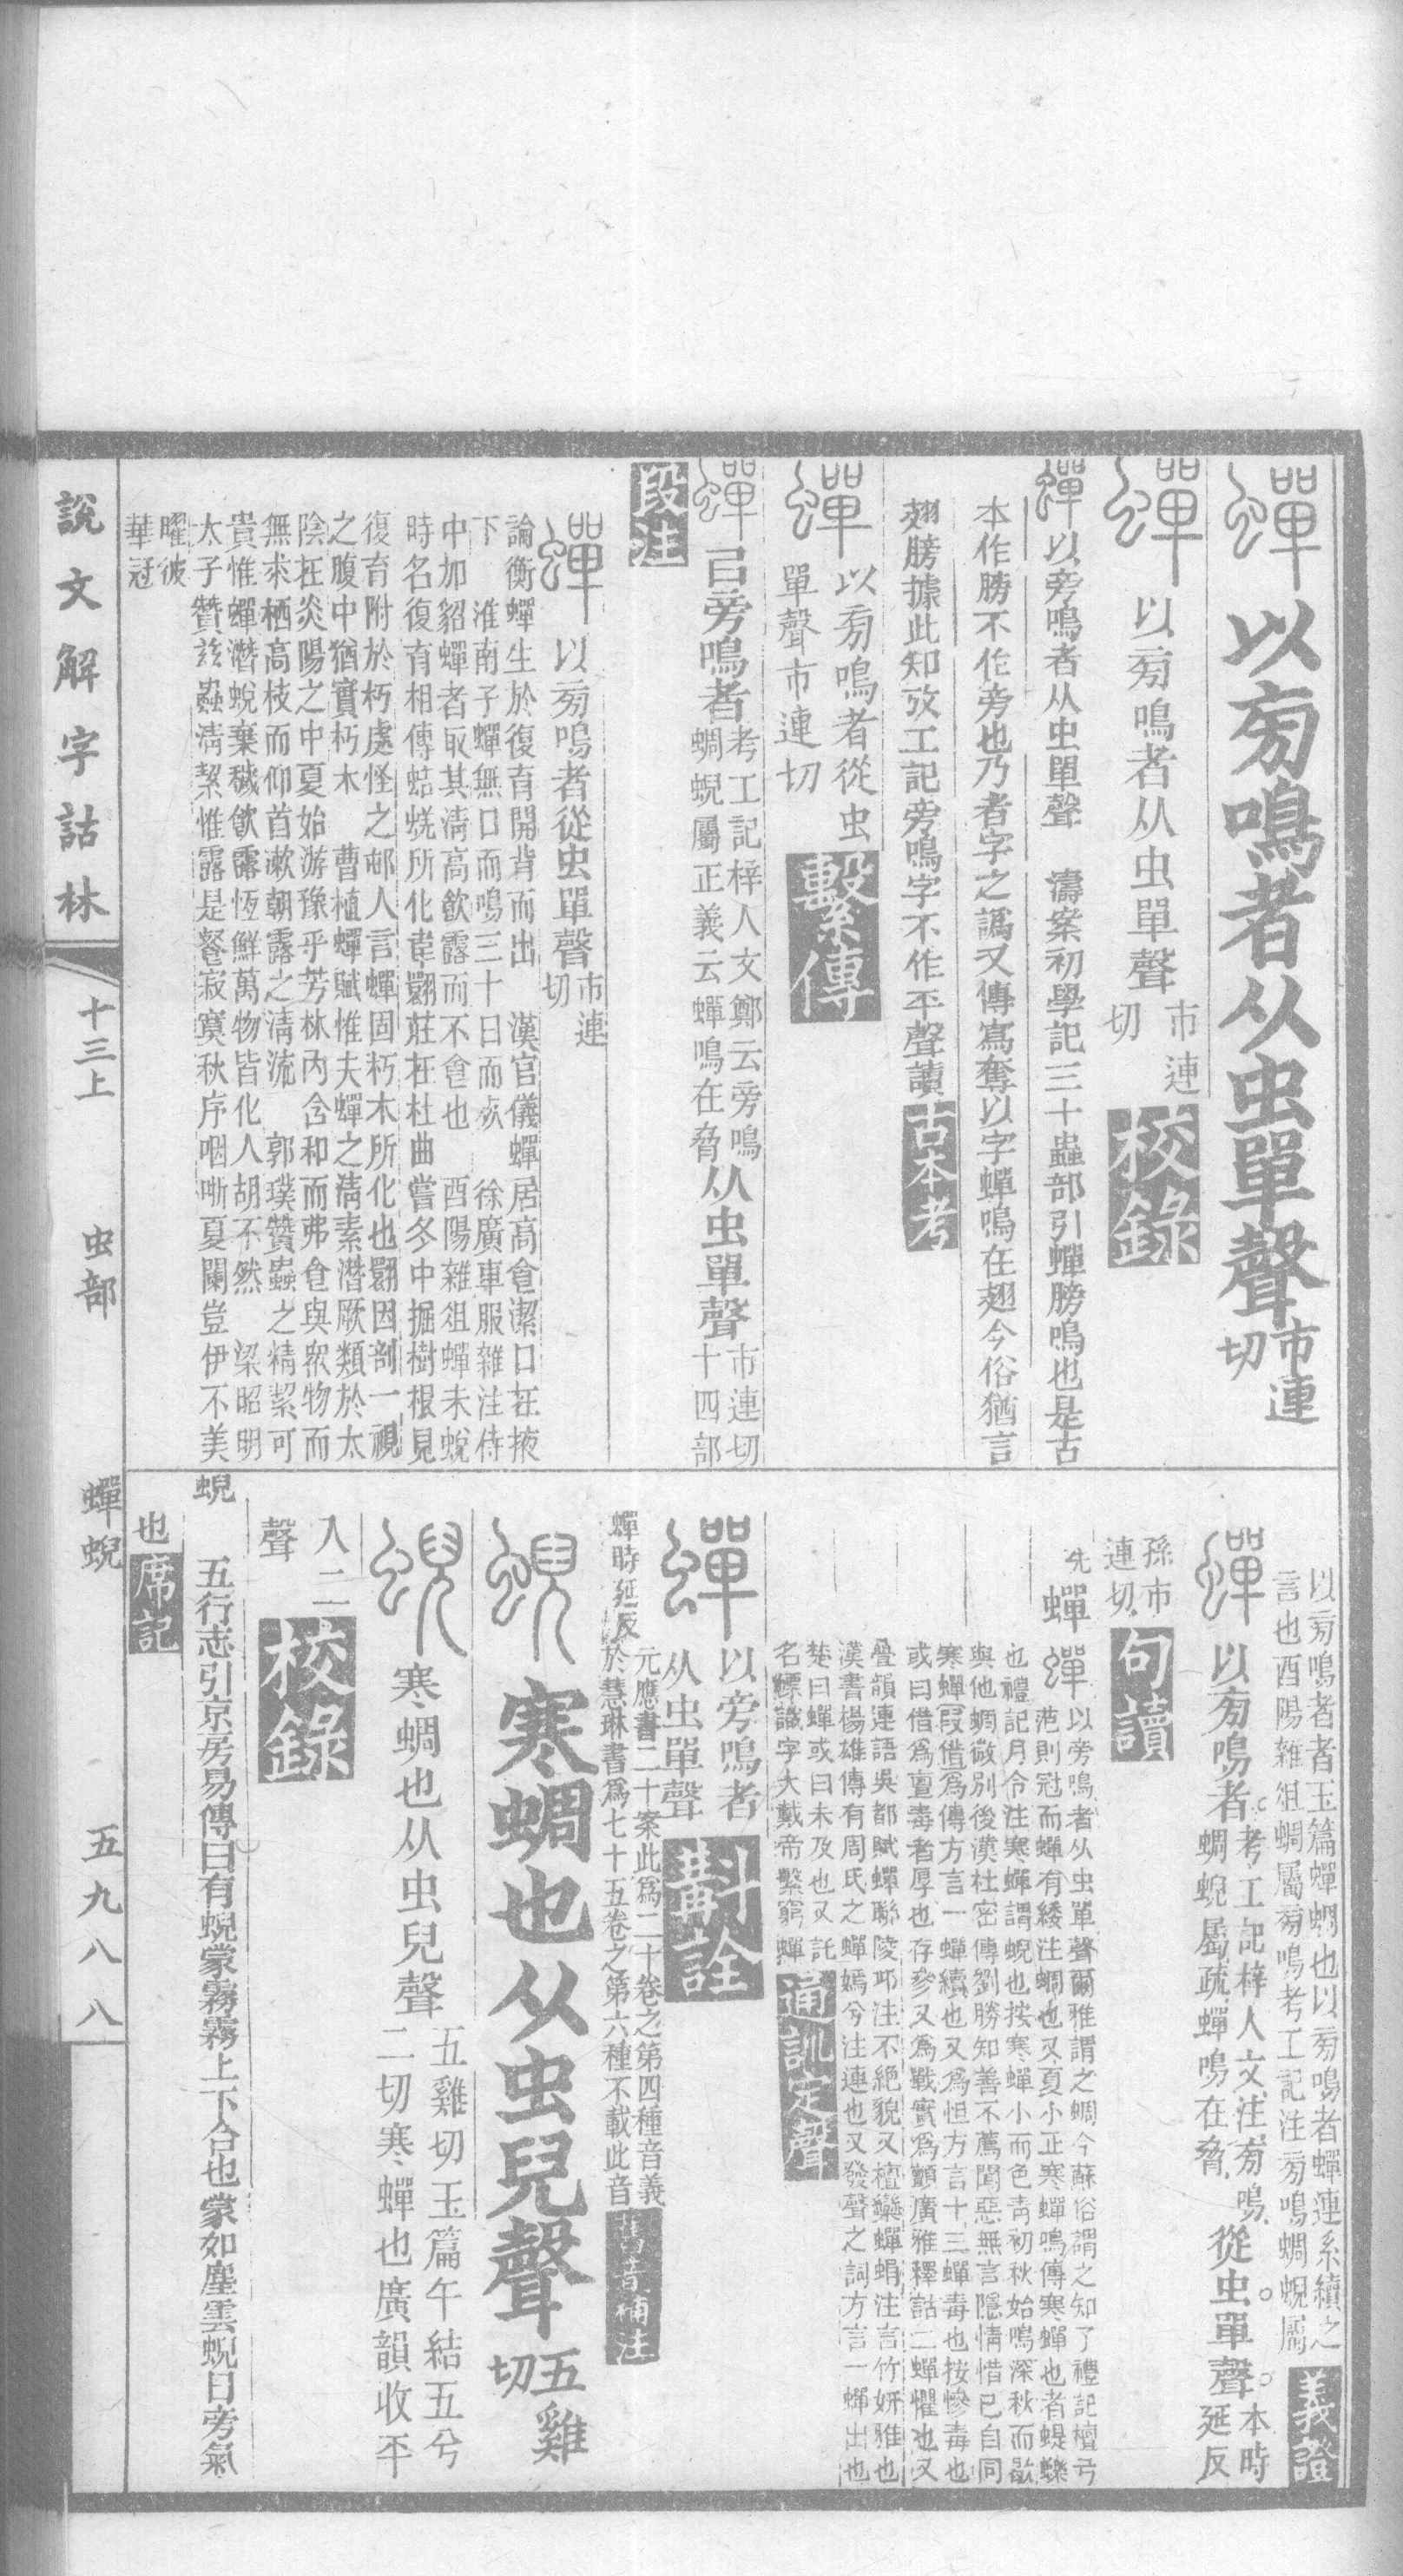 蟬 以㫄鳴者从虫單聲 市連切
蟬 以㫄鳴者从虫單聲 市連切 校錄
蟬 以旁鳴者从虫單聲 濤案初學記三十蟲部引蟬膀鳴也是古
本作膀不作旁也乃者字之譌又傳寫奪以字蟬鳴在翅今俗猶言
翅膀據此知攷工記旁鳴字不作平聲讀 古本考
蟬 以㫄鳴者從虫
單聲市連切 繫傳
蟬 㠯旁鳴者 考工記梓人文鄭云旁鳴蜩蜺屬正義云蟬鳴在脅 从虫單聲 市連切十四部
段注
蟬 以㫄鳴者從虫單聲 市連切
論衡蟬生於復育開背而出 漢官儀蟬居高食潔口在掖
下 淮南子蟬無口而鳴三十日而死 徐廣車服雜注侍
中加貂蟬者取其清高飲露而不食也 酉陽雜俎蟬未蛻
時名復育相傳蛣蜣所化韋翾莊在杜曲嘗冬中掘樹根見
復育附於朽處怪之邨人言蟬固朽木所化也翾因剖一視
之腹中猶實朽木 曹植蟬賦惟夫蟬之淸素潛厥類於太
陰在炎陽之中夏始游豫乎芳林內含和而弗食與衆物而
無求栖高枝而仰首漱朝露之淸流 郭璞贊蟲之精絜可
貴惟蟬潛蛻棄穢飮露恆鮮萬物皆化人胡不然 梁昭明
太子贊茲蟲淸絜惟露是餐寂寞秋序咽嘶夏闌豈伊不美
曜彼
華冠
以㫄鳴者者玉篇蟬蜩也以㫄鳴者蟬連系續之
言也酉陽雜俎蜩屬㫄鳴考工記注㫄鳴蜩蜺屬 義證
蟬 以㫄鳴者 考工記梓人文注㫄鳴蜩蜺屬疏蟬鳴在脅 從虫單聲 本時延反
孫市連切 句讀
先 蟬 蟬 以旁鳴者从虫單聲爾雅謂之蜩今蘇俗謂之知了禮記檀弓
范則冠而蟬有緌注蜩也又夏小正寒蟬鳴傳寒蟬也者蝭蠑
也禮記月令注寒蟬謂蜺也按寒蟬小而色靑初秋始鳴深秋而歇
與他蜩敻別後漢杜密傳劉勝知善不薦聞惡無言隱情惜己自同
寒蟬叚借爲傳方言一蟬續也又爲怛方言十三蟬毒也按慘毒也
或曰借爲亶毒者厚也存參又爲戰實爲顫廣雅釋詁二蟬懼也又
疊韻連語吳都賦蟬聯陵邱注不絕貌又檀欒蟬蜎注言竹妍雅也
漢書楊雄傳有周氏之蟬嫣兮注連也又發聲之詞方言一蟬出也
楚曰蟬或曰未及也又託
名幖識字大戴帝繫窮蟬 通訓定聲
蟬 以旁鳴者
从虫單聲 斠詮
蟬時延反 元應書二十案此爲二十卷之第四種音義
於慧琳書爲七十五卷之第六種不載此音 舊音補注
蜺 寒蜩也从虫兒聲 五雞切
蜺 寒蜩也从虫兒聲 五雞切玉篇午結五兮
二切寒蟬也廣韻收平
入二
聲 校錄
蜺 五行志引京房易傳曰有蜺蒙霧霧上下合也蒙如塵雲蜺日旁氣
也 席記
說文解字詁林 十三上 虫部 蟬蜺 五九八八